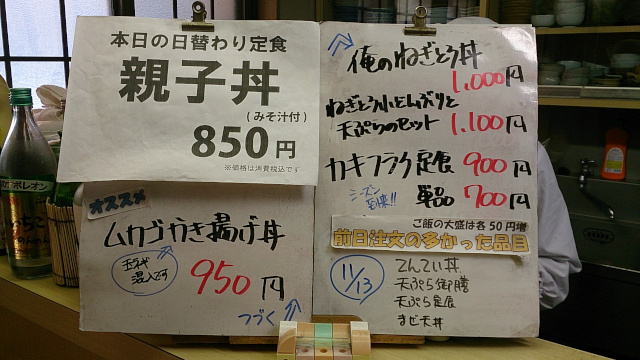 本日の日替わり定食
親子丼
(みそ汁付)
850円
※価格は消費税込です
オススメ
ムカゴかき揚げ丼
玉ネギ
混入です
950円
つづく
俺のねぎとろ丼
1.000円
ねぎとろ小どんぶりと
天ぷらのセット 1.100円
カキフライ定食 900円
シーズン
到来!!
単品 700円
ご飯の大盛は各50円増
前日注文の多かった品目
11/13
てんてい丼
天ぷら御膳
天ぷら定食
まぜ天丼